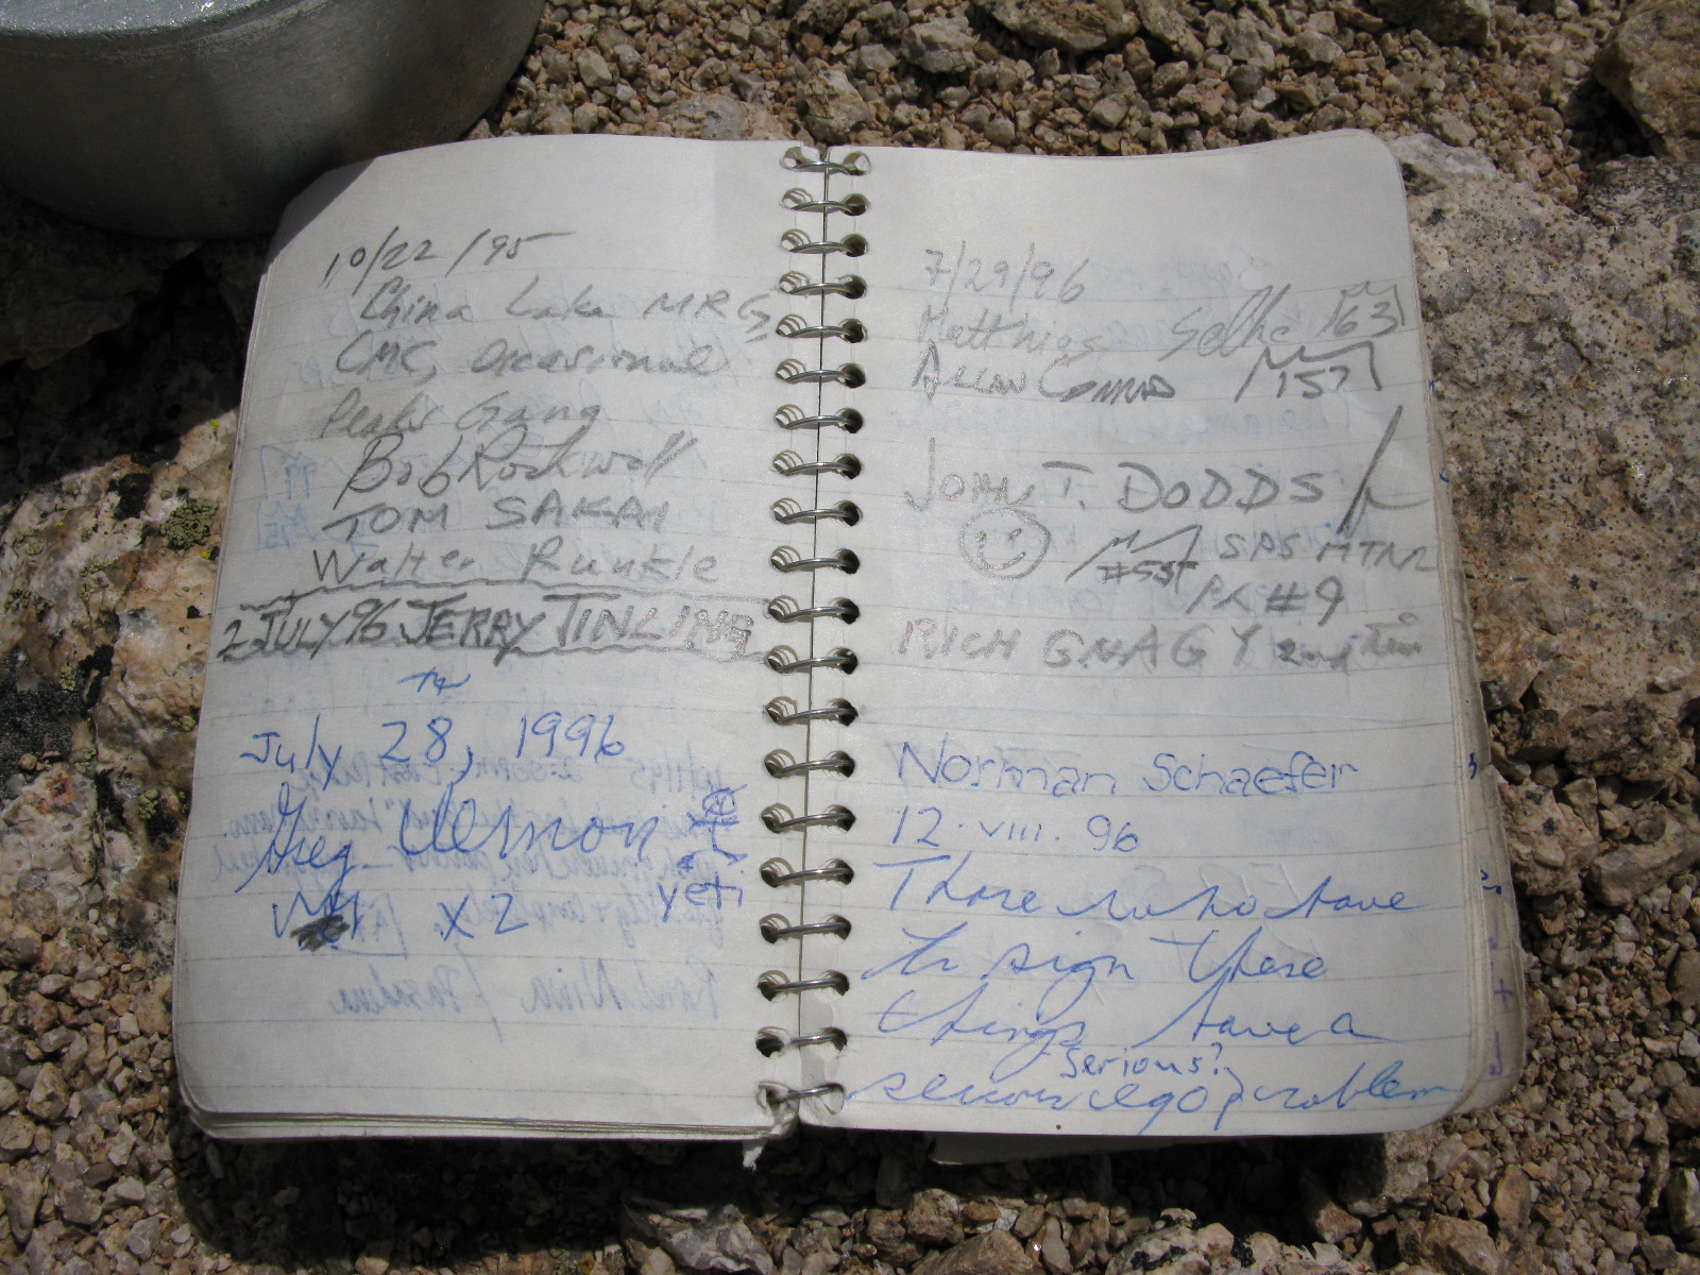 10/22/95
China Lake MRG,
CMC, Occasional
Peaks Gang
Bob Rockwell
TOM SAKAI
Walter Runkle
2 JULY 96 JERRY TINLING
July 28, 1996
Greg Vernon
x2 yeti
7/29/96
Matthias Selke 163
ALLAN CONRAD 157
JOHN T. DODDS
#551 SPS MTNR
PK #9
RICH GNAGY 2nd Time
Norman Schaefer
12.VIII.96
Those who have
to sign these
things have a
Serious?
serious ego problem